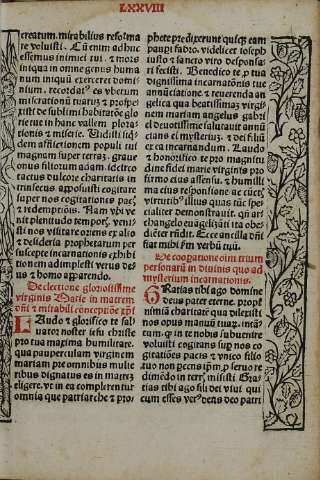 LXXVIII
creatum. mirabilius reforma
re voluisti. Cū enim adhuc
essemus inimici tui. ⁊ mors
iniqua in omne genus huma
num iniquū exerceret domi-
nium. recordat᷒ es vberum
miserationū tuarū ⁊ prospe-
xisti de sublimi habitatōe glo
rie tue in hanc vallem plora-
tionis ⁊ miserie. Uidisti siq͛
dem afflictionem populi tui
magnam super terrā. graue
onus filiorum adam. idcirco
tactus dulcore charitatis in
trinsecus apposuisti cogitare
super nos cogitationes pac᷒
⁊ redemptiōis. Nam vbi ve
nit plenitudo tempor᷒. veni-
sti nos visitare oriens ex alto
⁊ desideria prophetarum per
suscepte incarnationis exhibi
tionem adimplesti verus de-
us ⁊ homo apparendo.
De electione gloriosissime
virginis Marie in matrem
dn̄i ⁊ mirabili conceptiōe xp̄i
LAudo ⁊ glorifico te sal-
uator noster iesu christe
pro tua maxima humilitate.
qua pauperculam virginem
mariam pre omnibus mulie
ribus dignatus es in matrē
eligere. vt in ea complerentur
omnia que patriarche ⁊ pro-
phete predixerunt quisq᷒ eam
pauṗi fabro. videlicet ioseph
iusto ⁊ sancto viro desponsa-
ri fecisti. Benedico te ꝓ tua
dignissima incarnatōnis tue
annūciatione ⁊ reuerenda an
gelica qua beatissimaʒ virgi
nem mariam angelus gabri
el deuotissime salutauit annū
cians ei mysteriuʒ. ⁊ dei filiū
ex ea incarnandum. Laudo
⁊ honorifico te pro magnitu
dine fidei marie virginis pro
firmo eius assensu. ⁊ humilli
ma eius responsione ac cūct᷒
virtutibꝰ illius quas tūc spe-
cialiter demonstrauit. qn̄ ar-
changelo euāgelizāti ita obe
diēter rn̄dit. Ecce ancilla dn̄i
fiat mihi ẜm verbū tuū.
De cooꝑatione oīm trium
personarū in diuinis quo ad
mysterium incarnationis.
GRatias tibi ago domine
deus pater eterne. propt᷒
nimiā charitatē qua dilexisti
nos opus manuū tuarꝝ. incā
tum. q͛ in te nobis subuenire
voluisti cogitans suꝑ nos co
gitatiōes pacis ⁊ vnico filio
tuo non ꝑcens ip̄m ꝓ seruo re
dimēdo in terrā misisti Gra-
tias tibi ago fili dei viui qui
cum esses ver᷒ deus deo patri